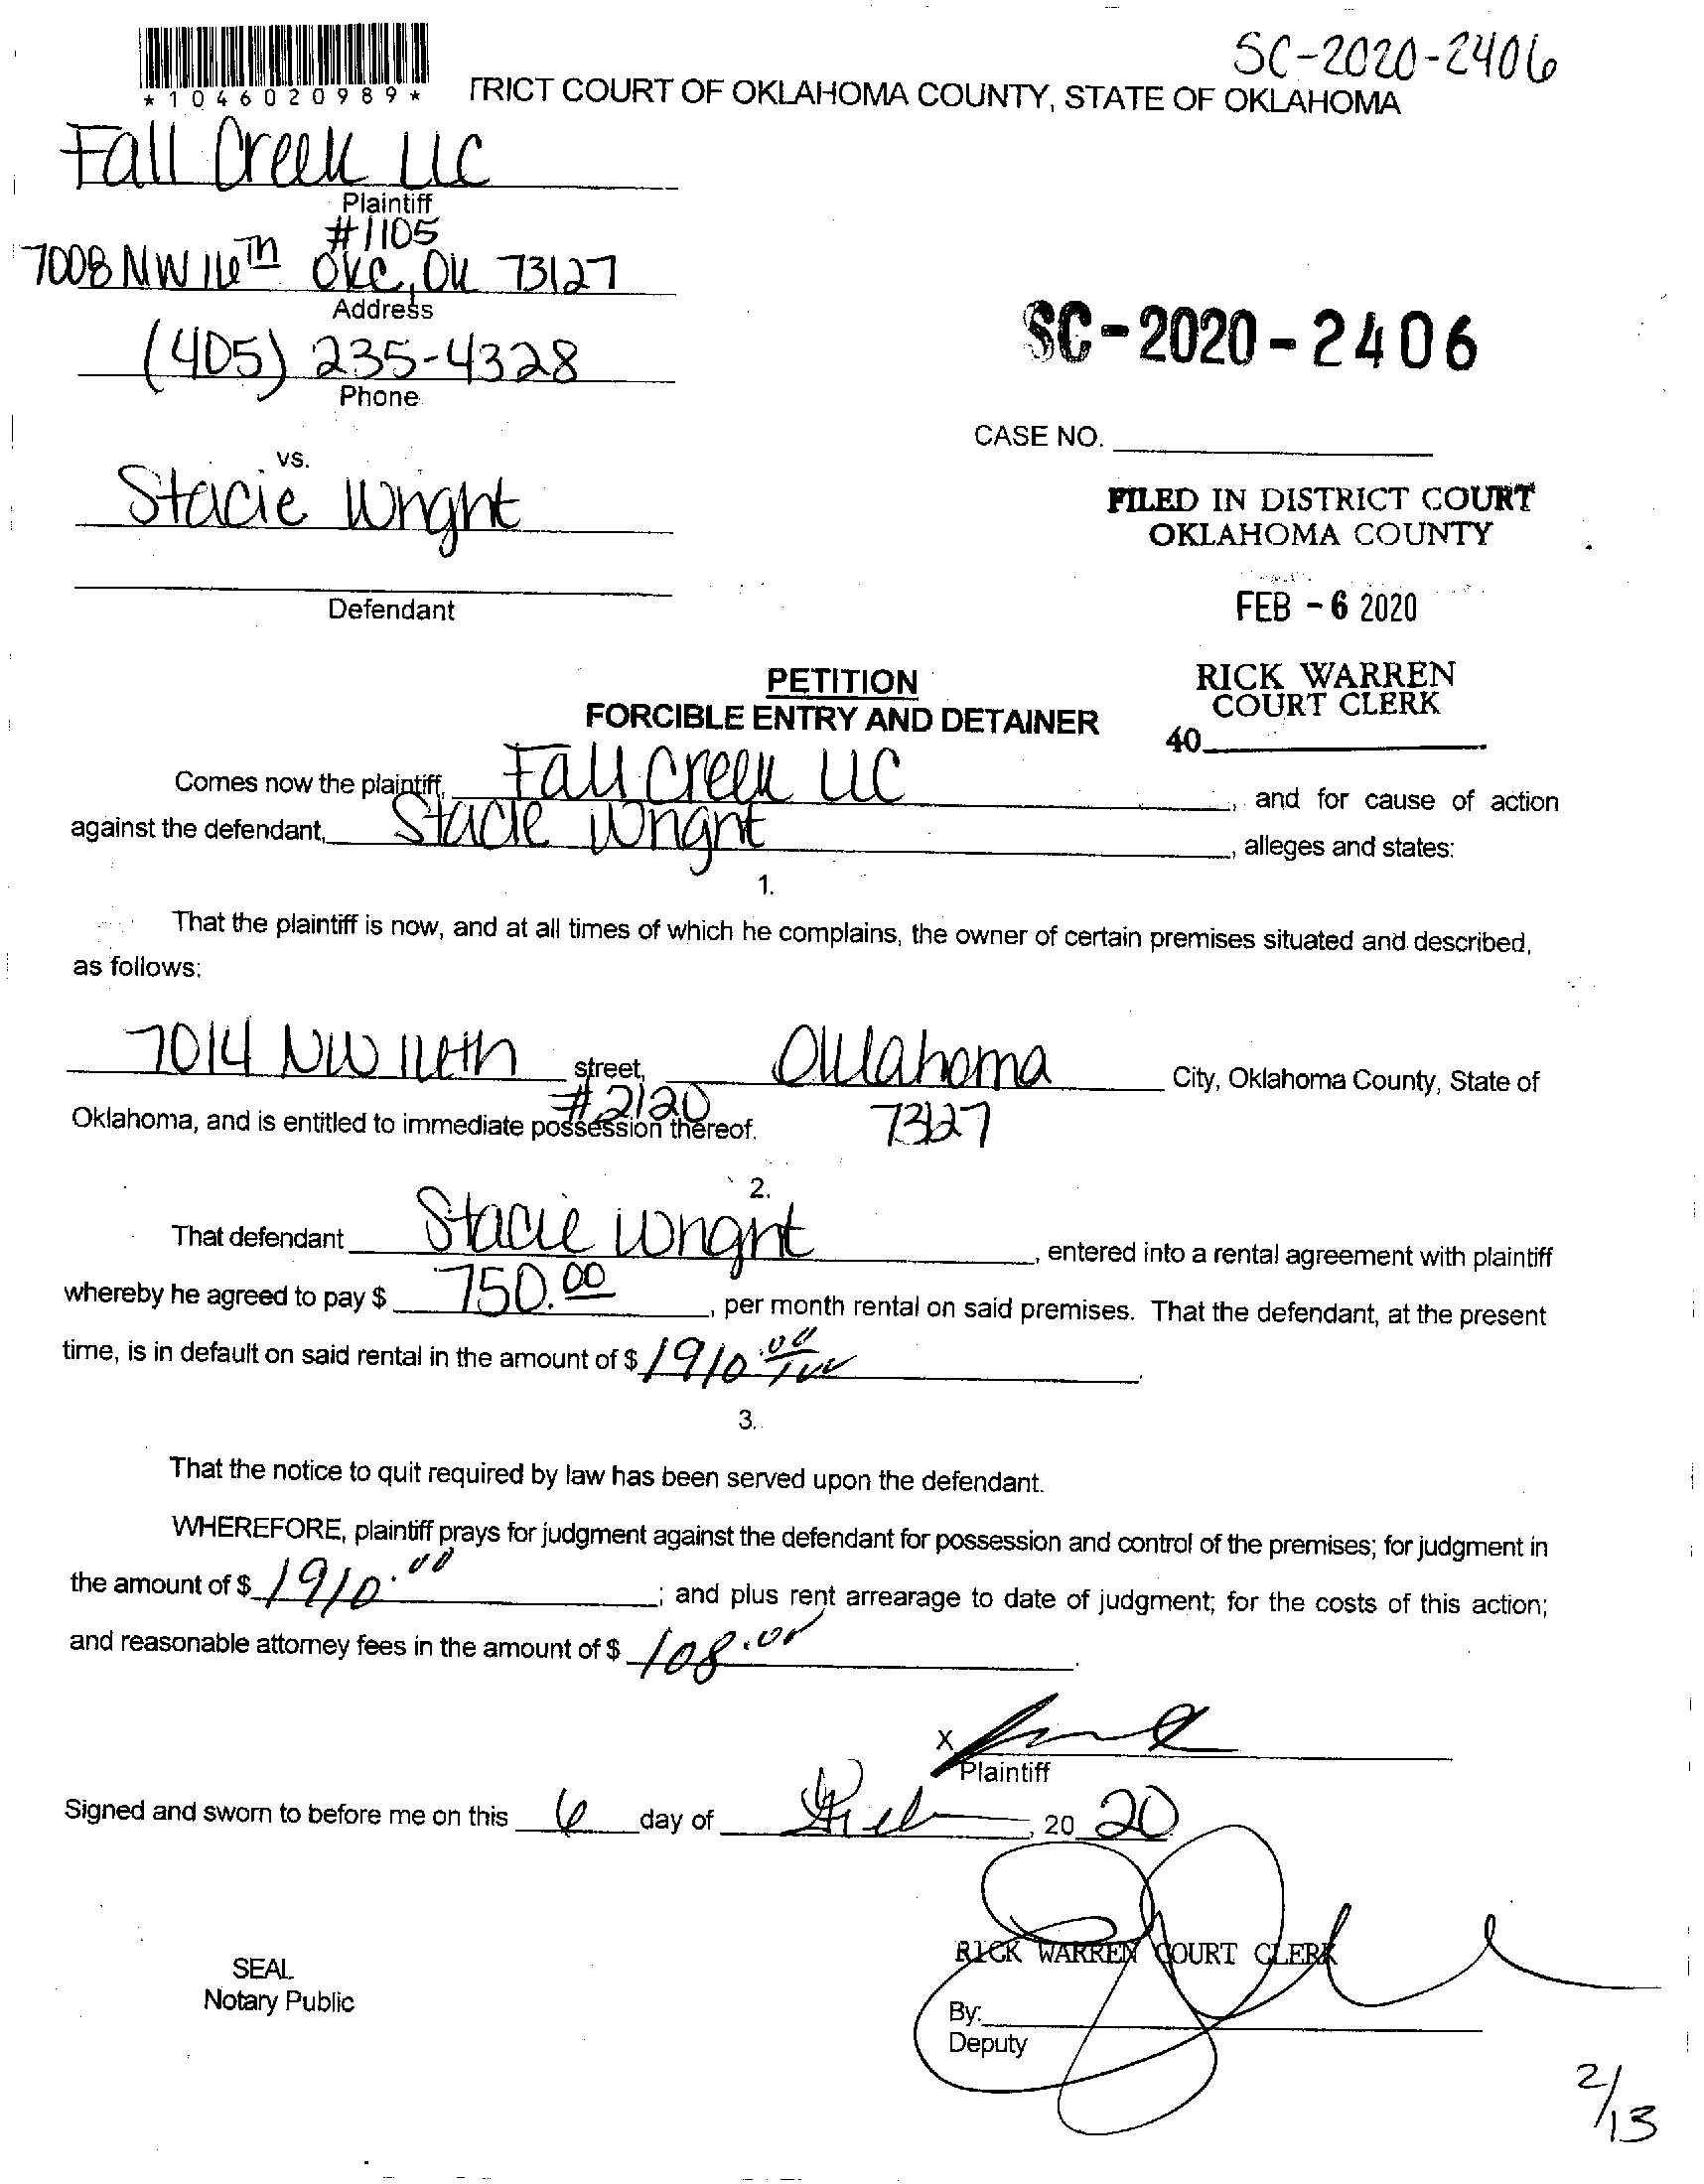 SC-2020-2406
*1046020989*
TRICT COURT OF OKLAHOMA COUNTY, STATE OF OKLAHOMA
Fall Creek LLC
Plaintiff
#1105
7008 NW 16th OKC, OK 73127
Address
(405) 235-4328
Phone
SC-2020-2406
CASE NO.
vs.
Stacie Wright
Defendant
FILED IN DISTRICT COURT
OKLAHOMA COUNTY
FEB - 6 2020
RICK WARREN
COURT CLERK
40
PETITION
FORCIBLE ENTRY AND DETAINER
Comes now the plaintiff, Fall Creek LLC, and for cause of action
against the defendant, Stacie Wright, alleges and states:
1.
That the plaintiff is now, and at all times of which he complains, the owner of certain premises situated and described,
as follows:
7014 NW 16th street, Oklahoma City, Oklahoma County, State of
#2120 73127
Oklahoma, and is entitled to immediate possession thereof.
2.
That defendant Stacie Wright, entered into a rental agreement with plaintiff
whereby he agreed to pay $ 750.00, per month rental on said premises. That the defendant, at the present
time, is in default on said rental in the amount of $ 1910.00
3.
That the notice to quit required by law has been served upon the defendant.
WHEREFORE, plaintiff prays for judgment against the defendant for possession and control of the premises; for judgment in
the amount of $ 1910.00; and plus rent arrearage to date of judgment; for the costs of this action;
and reasonable attorney fees in the amount of $ 108.00.
X
Plaintiff
Signed and sworn to before me on this 6 day of Feb, 20 20
RICK WARREN COURT CLERK
SEAL
Notary Public
By:
Deputy
2/13